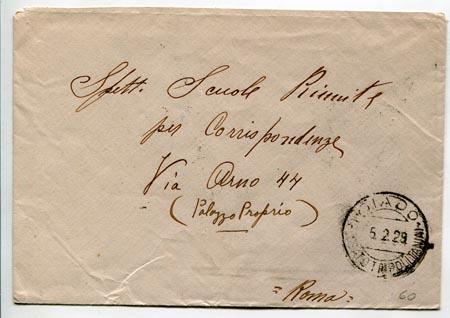 Spett. Scuole Riunite
per Corrispondenza
Via Arno 44
(Palazzo Proprio)
= Roma =
5.2.29
60